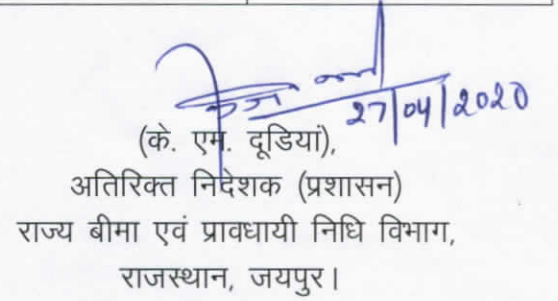 27/04/2020
(के. एम. दूडियां),
अतिरिक्त निदेशक (प्रशासन)
राज्य बीमा एवं प्रावधायी निधि विभाग,
राजस्थान, जयपुर।